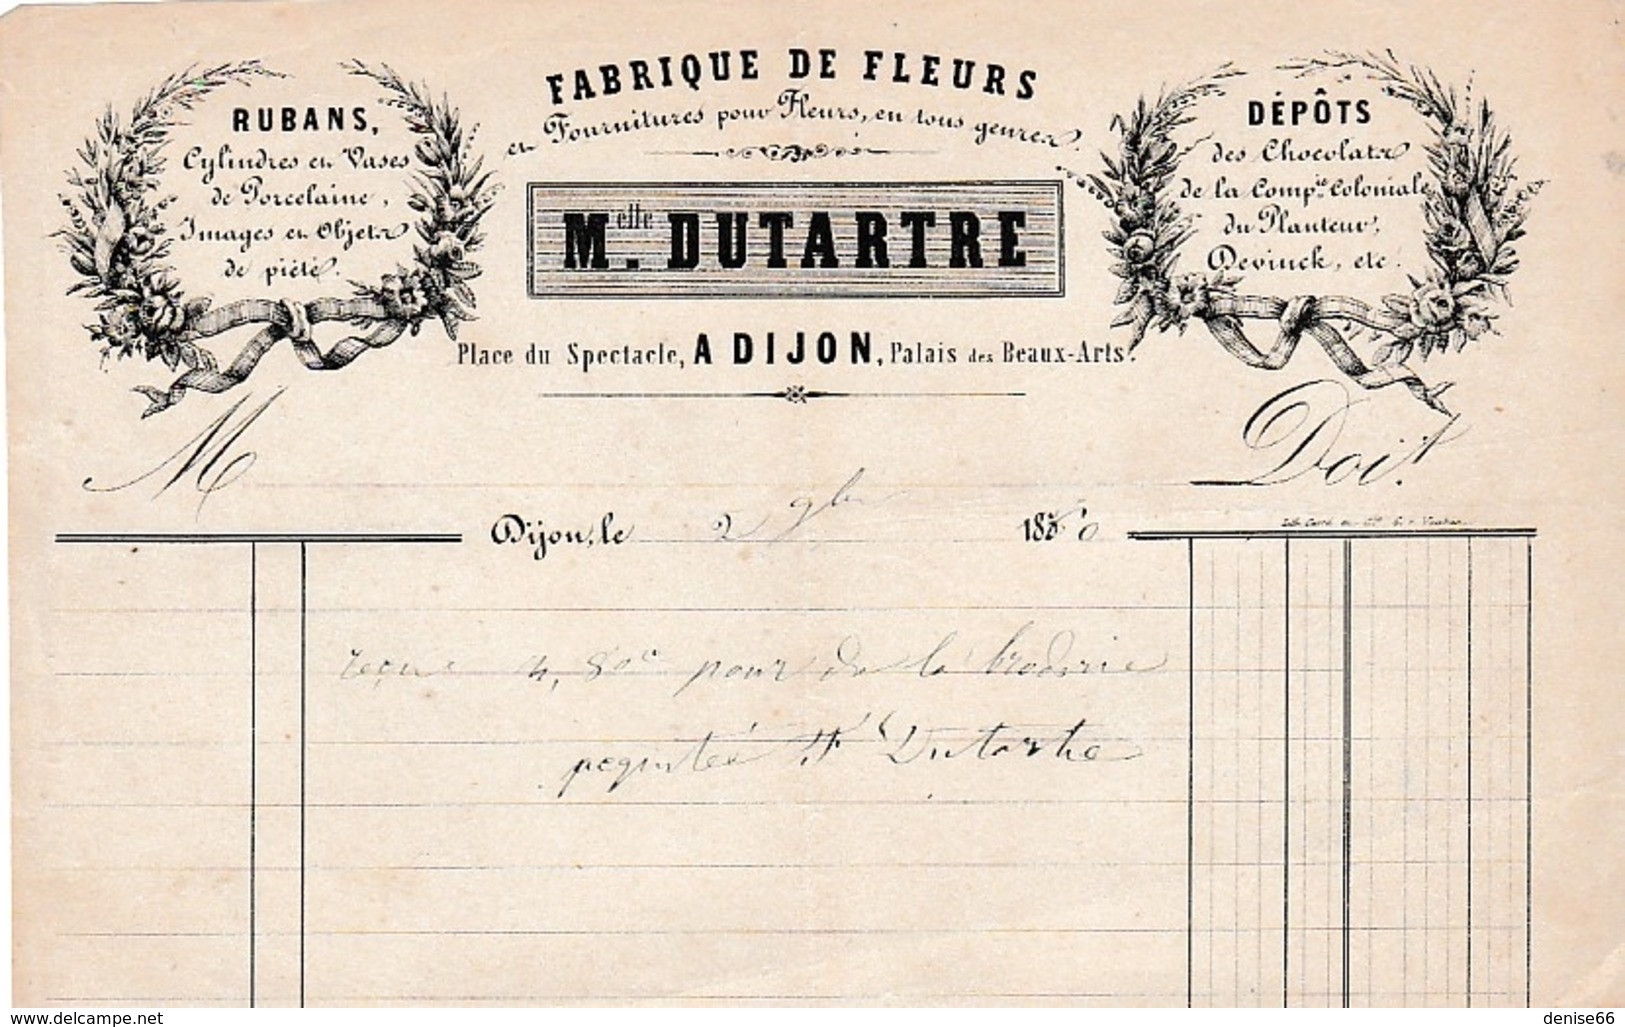 FABRIQUE DE FLEURS
et Fournitures pour Fleurs, en tous genres.
RUBANS,
Cylindres et Vases
de Porcelaine,
Images et Objets
de piété.
DÉPÔTS
des Chocolats
de la Comp.ie Coloniale
du Planteur,
Devinck, etc.
Melle DUTARTRE
Place du Spectacle, A DIJON, Palais des Beaux-Arts.
M Doit
Dijon, le 2 9bre 18
reçue 4,80c pour de la broderie
Dutartre
www.delcampe.net
denise66